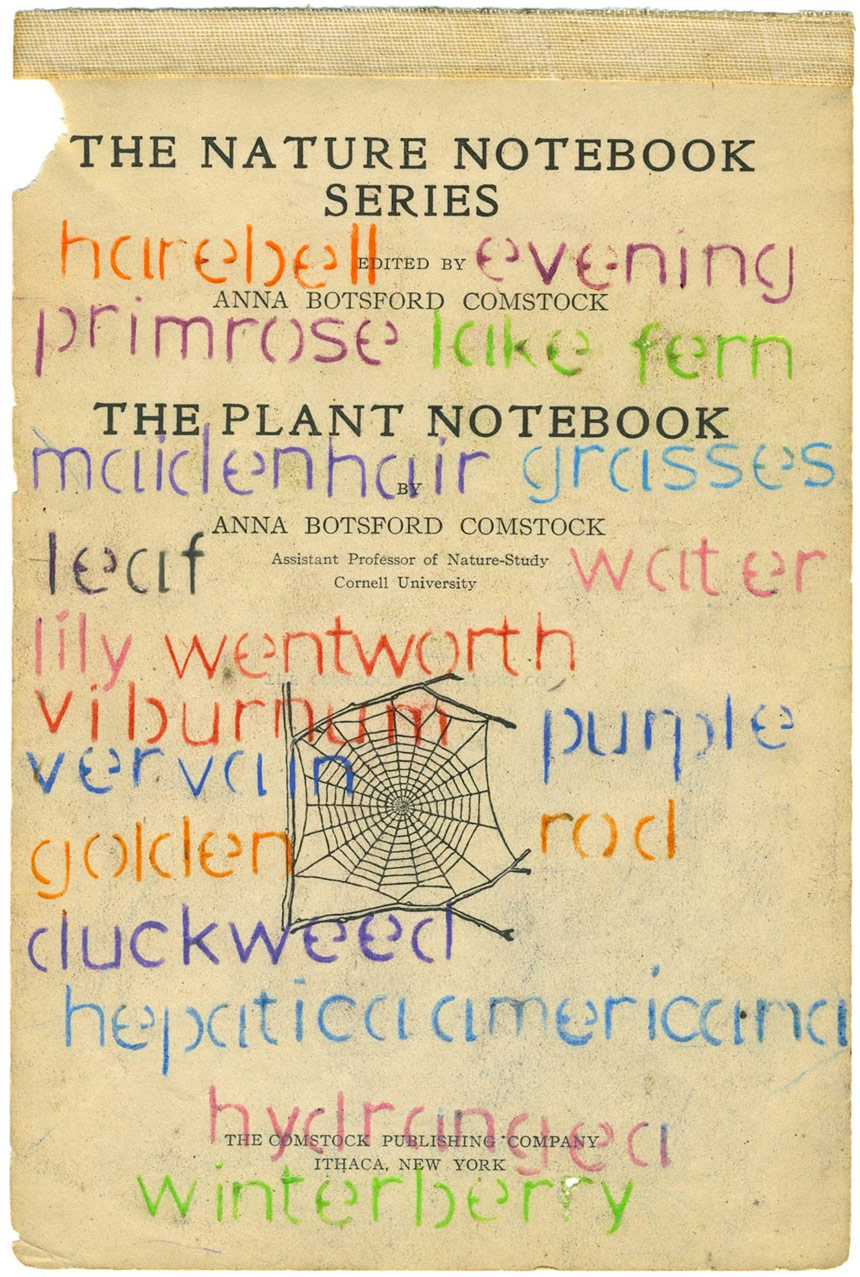 THE NATURE NOTEBOOK
SERIES
harebell EDITED BY evening
ANNA BOTSFORD COMSTOCK
primrose lake fern
THE PLANT NOTEBOOK
maidenhair grasses
BY
ANNA BOTSFORD COMSTOCK
leaf Assistant Professor of Nature-Study water
Cornell University
lily wentworth
viburnum purple
vervain
golden rod
duckweed
hepatica americana
hydrangea
THE COMSTOCK PUBLISHING COMPANY
ITHACA, NEW YORK
winterberry